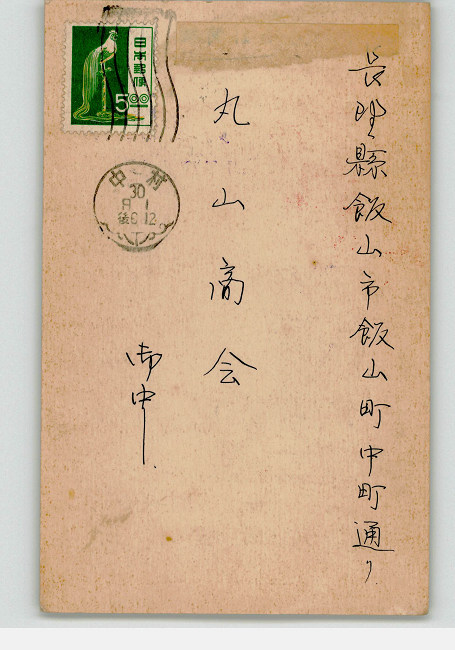 長野縣飯山市飯山町中町通り
丸山商会
御中
日本郵便
5.00
中村
30